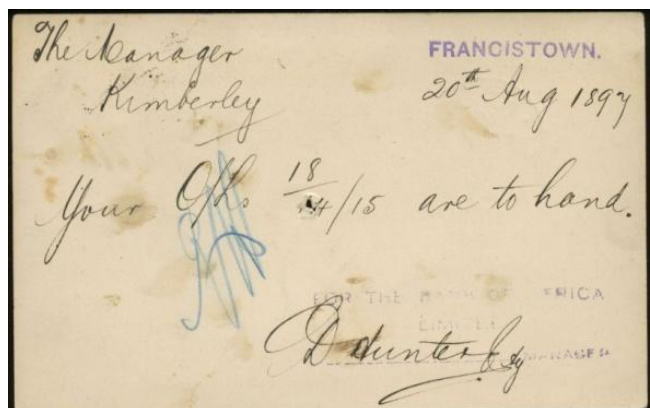 The Manager FRANCISTOWN.
Kimberley 20th Aug 1897
Your O/Ls 18/14/15 are to hand.
FOR THE BANK OF AFRICA
LIMITED
D Hunter MANAGER